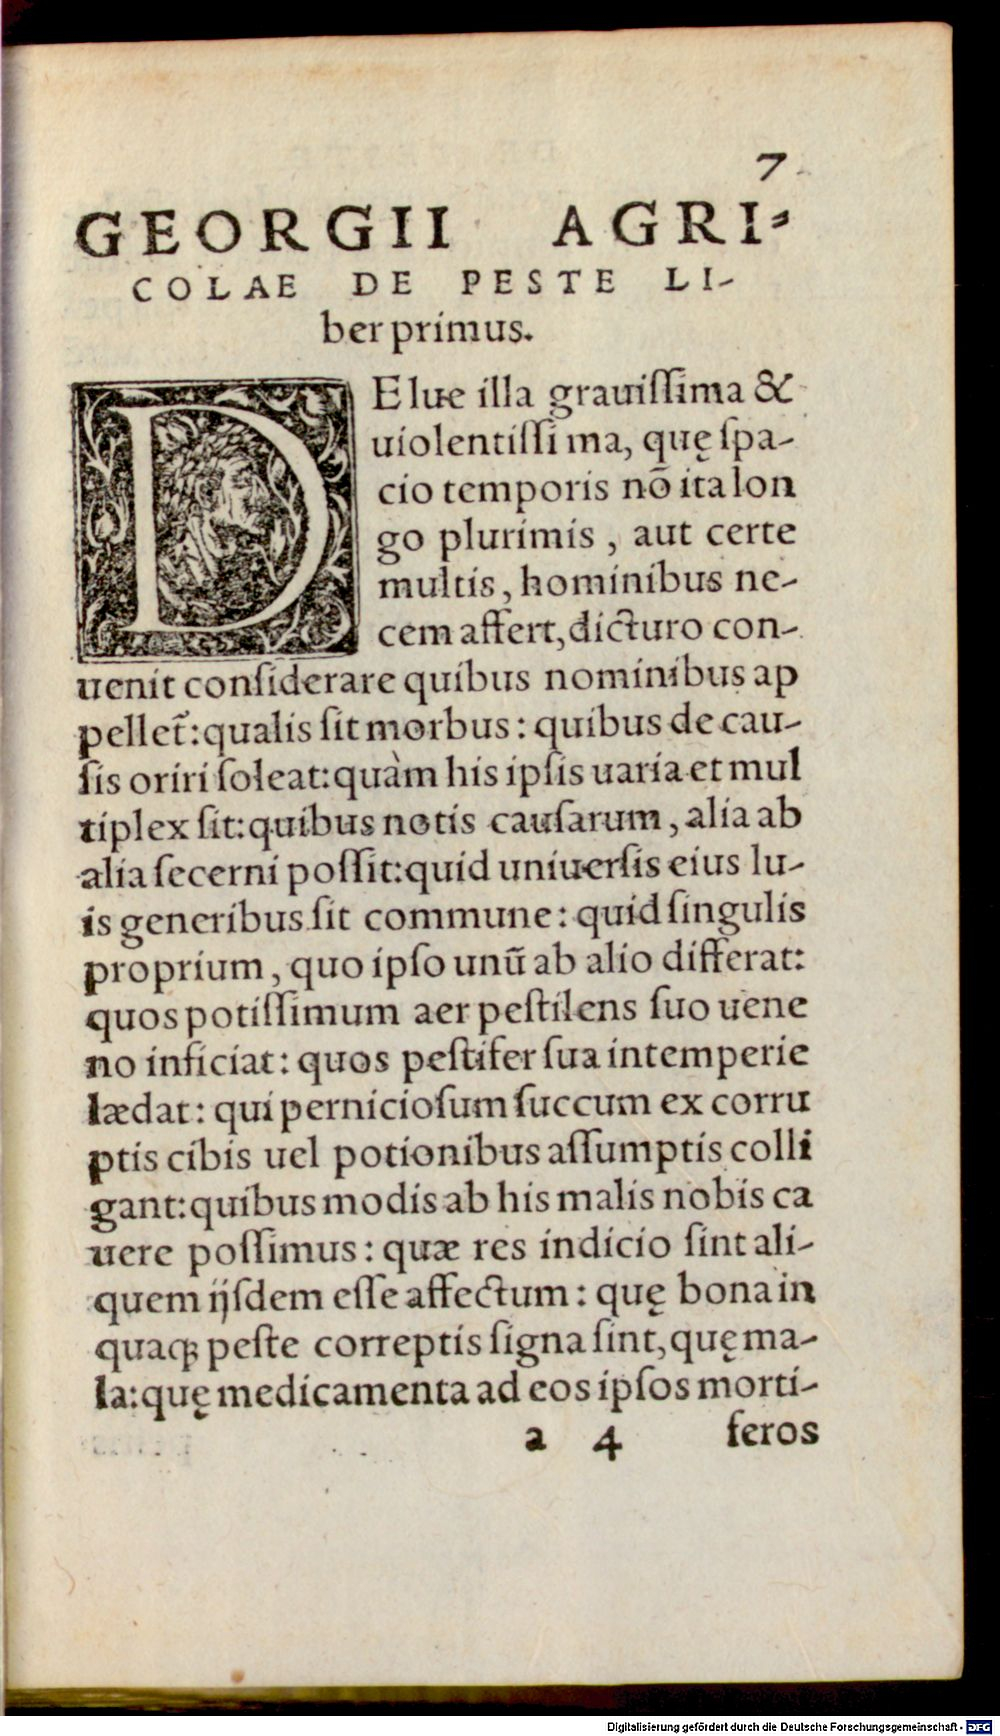 7
GEORGII AGRI-
COLAE DE PESTE LI-
ber primus.
DE lue illa grauissima &
uiolentissima, quę spa-
cio temporis nō ita lon
go plurimis, aut certe
multis, hominibus ne-
cem affert, dicturo con-
uenit considerare quibus nominibus ap
pellet̃: qualis sit morbus: quibus de cau-
sis oriri soleat: quàm his ipsis uaria et mul
tiplex sit: quibus notis causarum, alia ab
alia secerni possit: quid uniuersis eius lu-
is generibus sit commune: quid singulis
proprium, quo ipso unū ab alio differat:
quos potissimum aer pestilens suo uene
no inficiat: quos pestifer sua intemperie
lædat: qui perniciosum succum ex corru
ptis cibis uel potionibus assumptis colli
gant: quibus modis ab his malis nobis ca
uere possimus: quæ res indicio sint ali-
quem ijsdem esse affectum: quę bona in
quaq; peste correptis signa sint, quę ma-
la: quę medicamenta ad eos ipsos morti-
a 4 feros
Digitalisierung gefördert durch die Deutsche Forschungsgemeinschaft - DFG